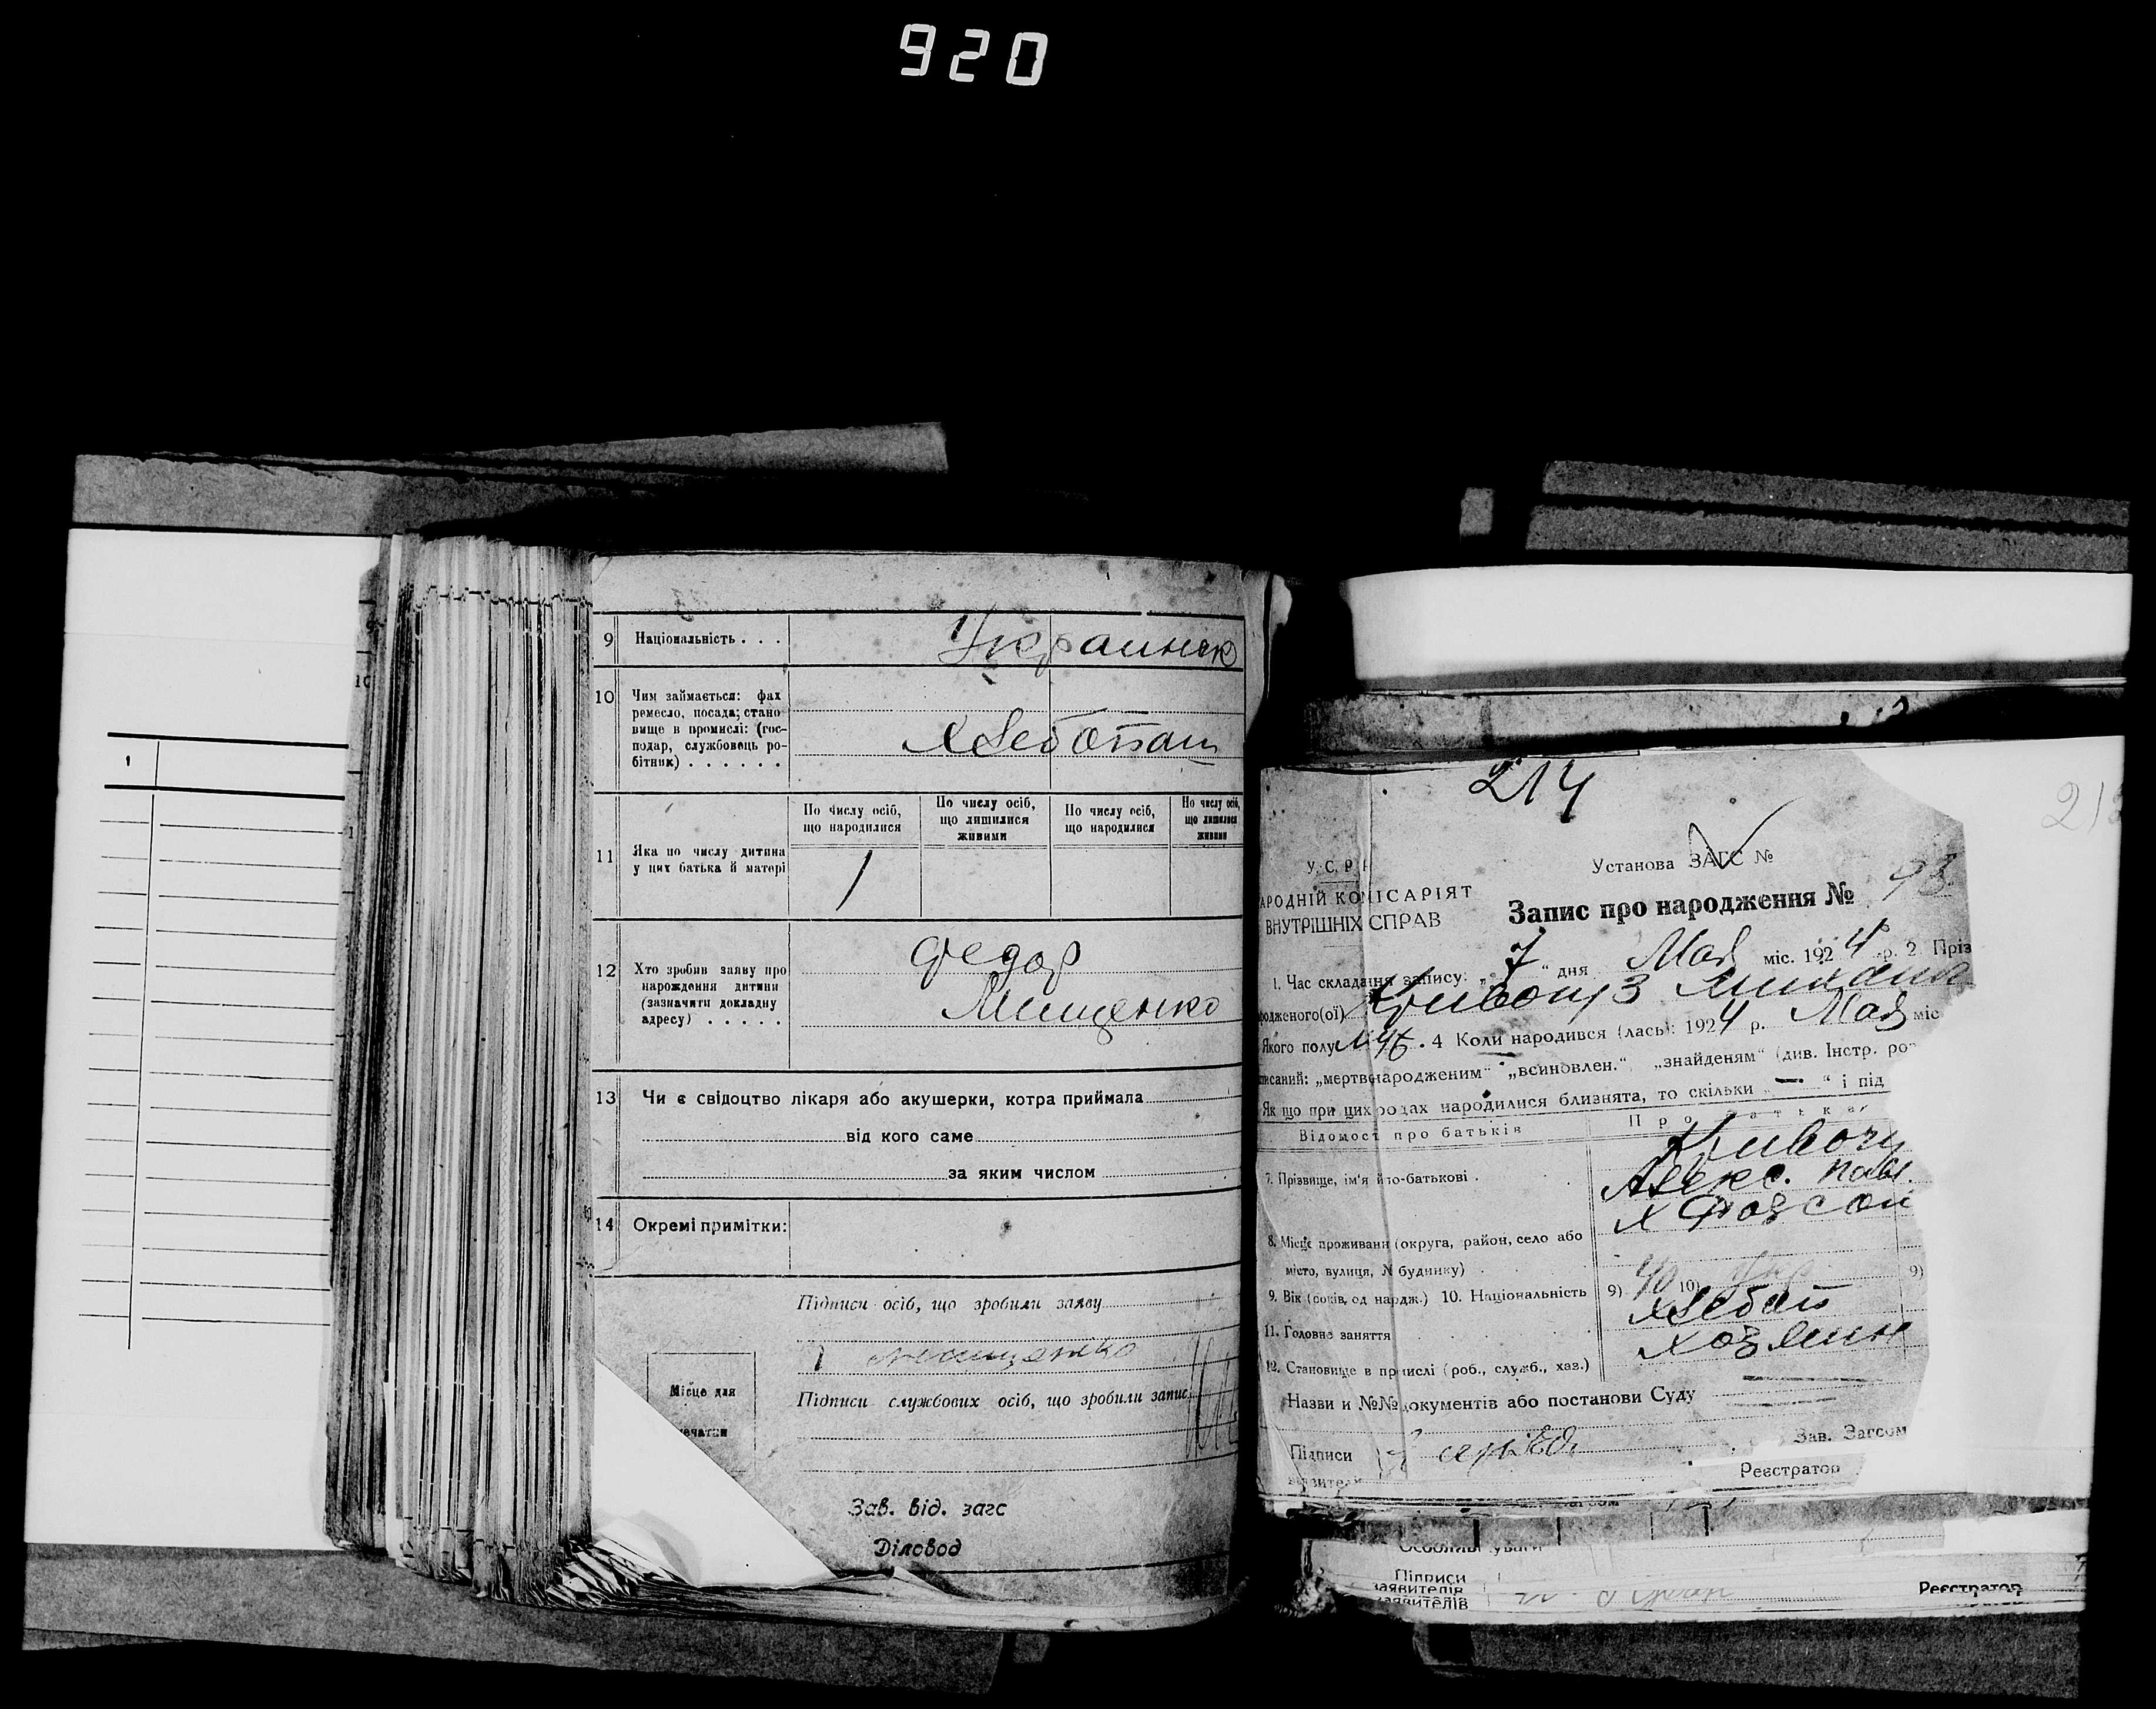 920
9 Національність . . .
Украинск
10 Чим займається: фах
ремесло, посада; стано
вище в промислі: (гос-
подар, службовець ро-
бітник) . . . . . .
Хлебопаш
11 Яка по числу дитина
у цих батька й матері
По числу осіб,
що народилися
По числу осіб,
що лишилися
живими
По числу осіб,
що народилися
По числу осіб,
що лишилися
живими
1
12 Хто зробив заяву про
народження дитини
(зазначити докладну
адресу) . . . . .
Федор
Мищенко
13 Чи є свідоцтво лікаря або акушерки, котра приймала
від кого саме
за яким числом
14 Окремі примітки:
Підписи осіб, що зробили заяву
Мищенко
Місце для
печатки
Підписи службових осіб, що зробили запис
Зав. від. загс
Діловод
214
У. С. Р. Р
Установа ЗАГС №
АРОДНІЙ КОМІСАРІЯТ
ВНУТРІШНІХ СПРАВ
Запис про народження № 93
1. Час складання запису: „ 7 “ дня Мая міс. 1924 р. 2. Пріз
одженого(ої)
Якого полу Муж. 4 Коли народився (лась): 1924 р. Мая міс
писаний: „мертвонародженим“ „всиновлен.“ „знайденям“ (див. Інстр. ро
Як що при цих родах народилися близнята, то скільки „ — “ і під
Відомост про батьків
Про батька
7. Прізвище, ім'я й по-батькові .
Кривору
Алекс. Павл.
8. Місце проживанн (округа, район, село або
місто, вулиця, № будинку) .
9. Вік (років од нардж.) 10. Національність
9) 40 10) Укр 9)
11. Головне заняття
Хлебоп
12. Становище в прмислі (роб., служб., хаз.)
Хозяин
Назви и №№ документів або постанови Суду
Підписи
Зав. Загсом
Реєстратор
Підписи
заявителів
заявителів
Реєстратор